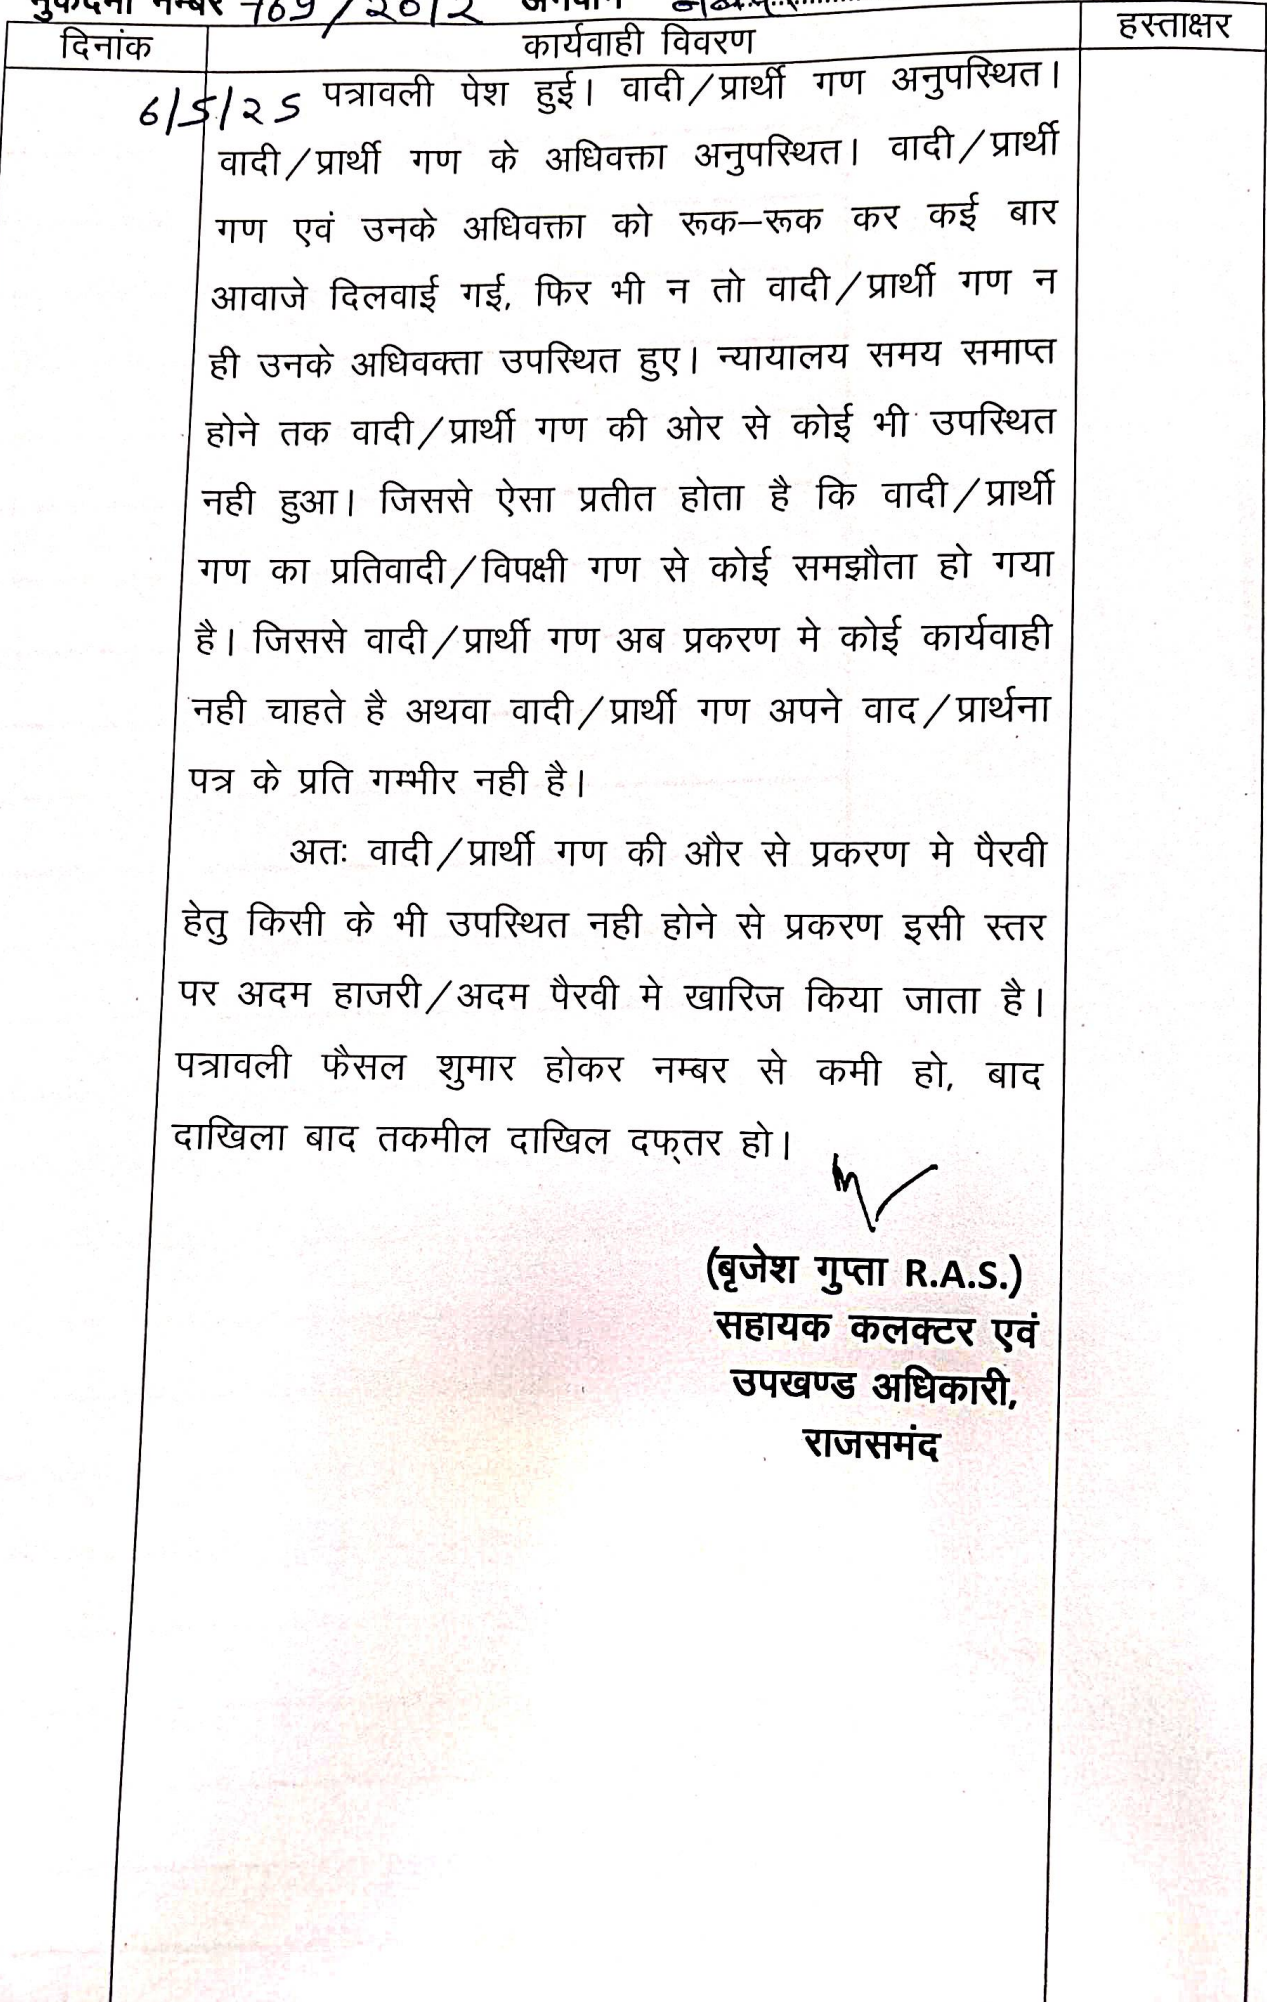 मुकदमा नम्बर 169/2012 अनवान
दिनांक कार्यवाही विवरण हस्ताक्षर
6/5/25 पत्रावली पेश हुई। वादी/प्रार्थी गण अनुपस्थित।
वादी/प्रार्थी गण के अधिवक्ता अनुपस्थित। वादी/प्रार्थी
गण एवं उनके अधिवक्ता को रूक–रूक कर कई बार
आवाजे दिलवाई गई, फिर भी न तो वादी/प्रार्थी गण न
ही उनके अधिवक्ता उपस्थित हुए। न्यायालय समय समाप्त
होने तक वादी/प्रार्थी गण की ओर से कोई भी उपस्थित
नही हुआ। जिससे ऐसा प्रतीत होता है कि वादी/प्रार्थी
गण का प्रतिवादी/विपक्षी गण से कोई समझौता हो गया
है। जिससे वादी/प्रार्थी गण अब प्रकरण मे कोई कार्यवाही
नही चाहते है अथवा वादी/प्रार्थी गण अपने वाद/प्रार्थना
पत्र के प्रति गम्भीर नही है।
अतः वादी/प्रार्थी गण की और से प्रकरण मे पैरवी
हेतु किसी के भी उपस्थित नही होने से प्रकरण इसी स्तर
पर अदम हाजरी/अदम पैरवी मे खारिज किया जाता है।
पत्रावली फैसल शुमार होकर नम्बर से कमी हो, बाद
दाखिला बाद तकमील दाखिल दफ्तर हो।
(बृजेश गुप्ता R.A.S.)
सहायक कलक्टर एवं
उपखण्ड अधिकारी,
राजसमंद